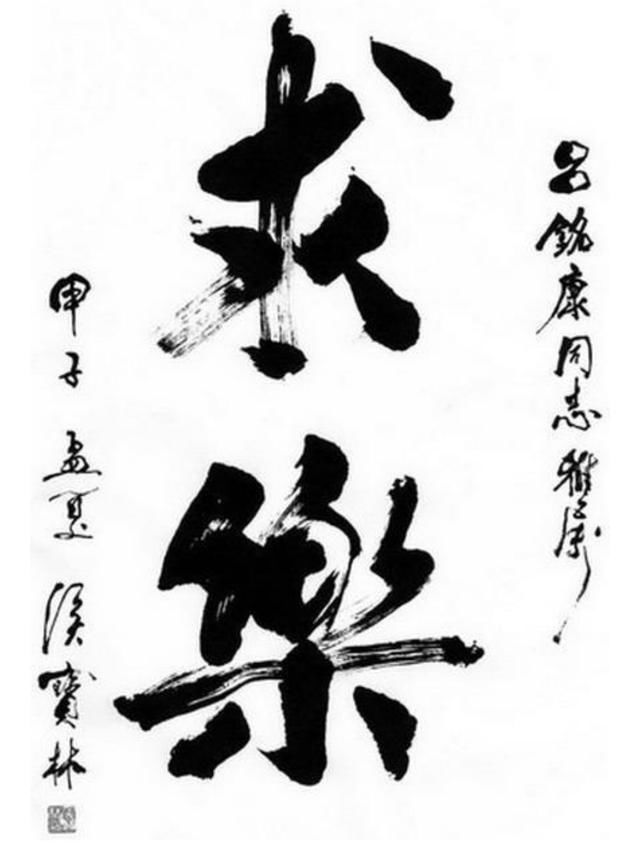 吕銘康同志雅属
求樂
甲子孟夏
侯寳林